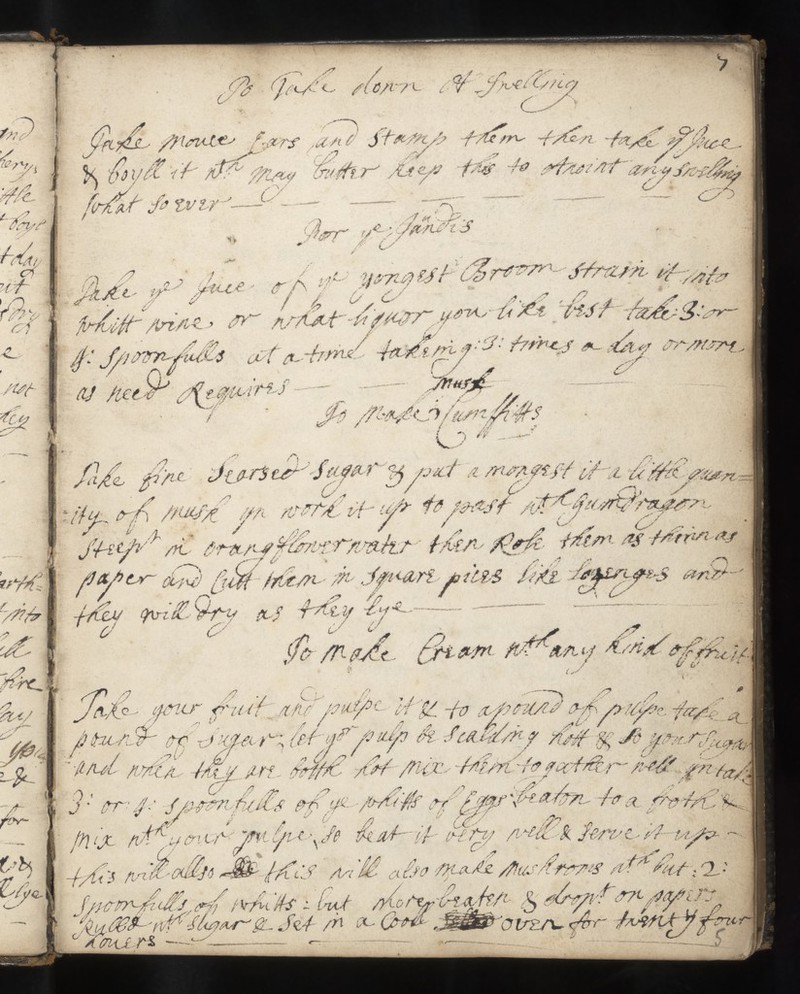 7
To Take down A Swelling
Take mouce Ears and Stamp them then take ye Juce
& boyll it wth may butter keep this to Anoint any swelling
What so ever
For ye Jandis
Take ye Juce of ye yongest Broom strain it into
Whitt wine or what liquor you like best take :3: or
4: spoonfulls at a time takeing :3: times a day or more
as need Requires
musk
To make Cumffitts
Take fine Searsed Sugar & put amongest it a little quan=
ity of musk yn work it up to past wth Gumdragon
Steept in orangflowerwater then Role them as thinn as
paper and Cutt them in square pices like lozenges and
they will dry as they lye
To make Cream wth any kind of fruit
Take your fruit and pulpe it & to a pound of pulpe take a
pound of Sugar, let yor pulp be scalding hott & so your Sugar
and when they are botth hot mix them to gather well yn take
3: or 4: spoonfulls of ye whitts of Eggs beaton to a froth &
mix wth your pulpe, so beat it very well & serve it up
this will allso this will also make mushroms wth but :2:
spoonfulls of whitts: but more beaten & dropt on papers
Rubbd wth Sugar & Set in a Coole oven for twenty four
houers
and
ittle
t day
e
not
arth=
t into
fire
lay
e &
for
lye